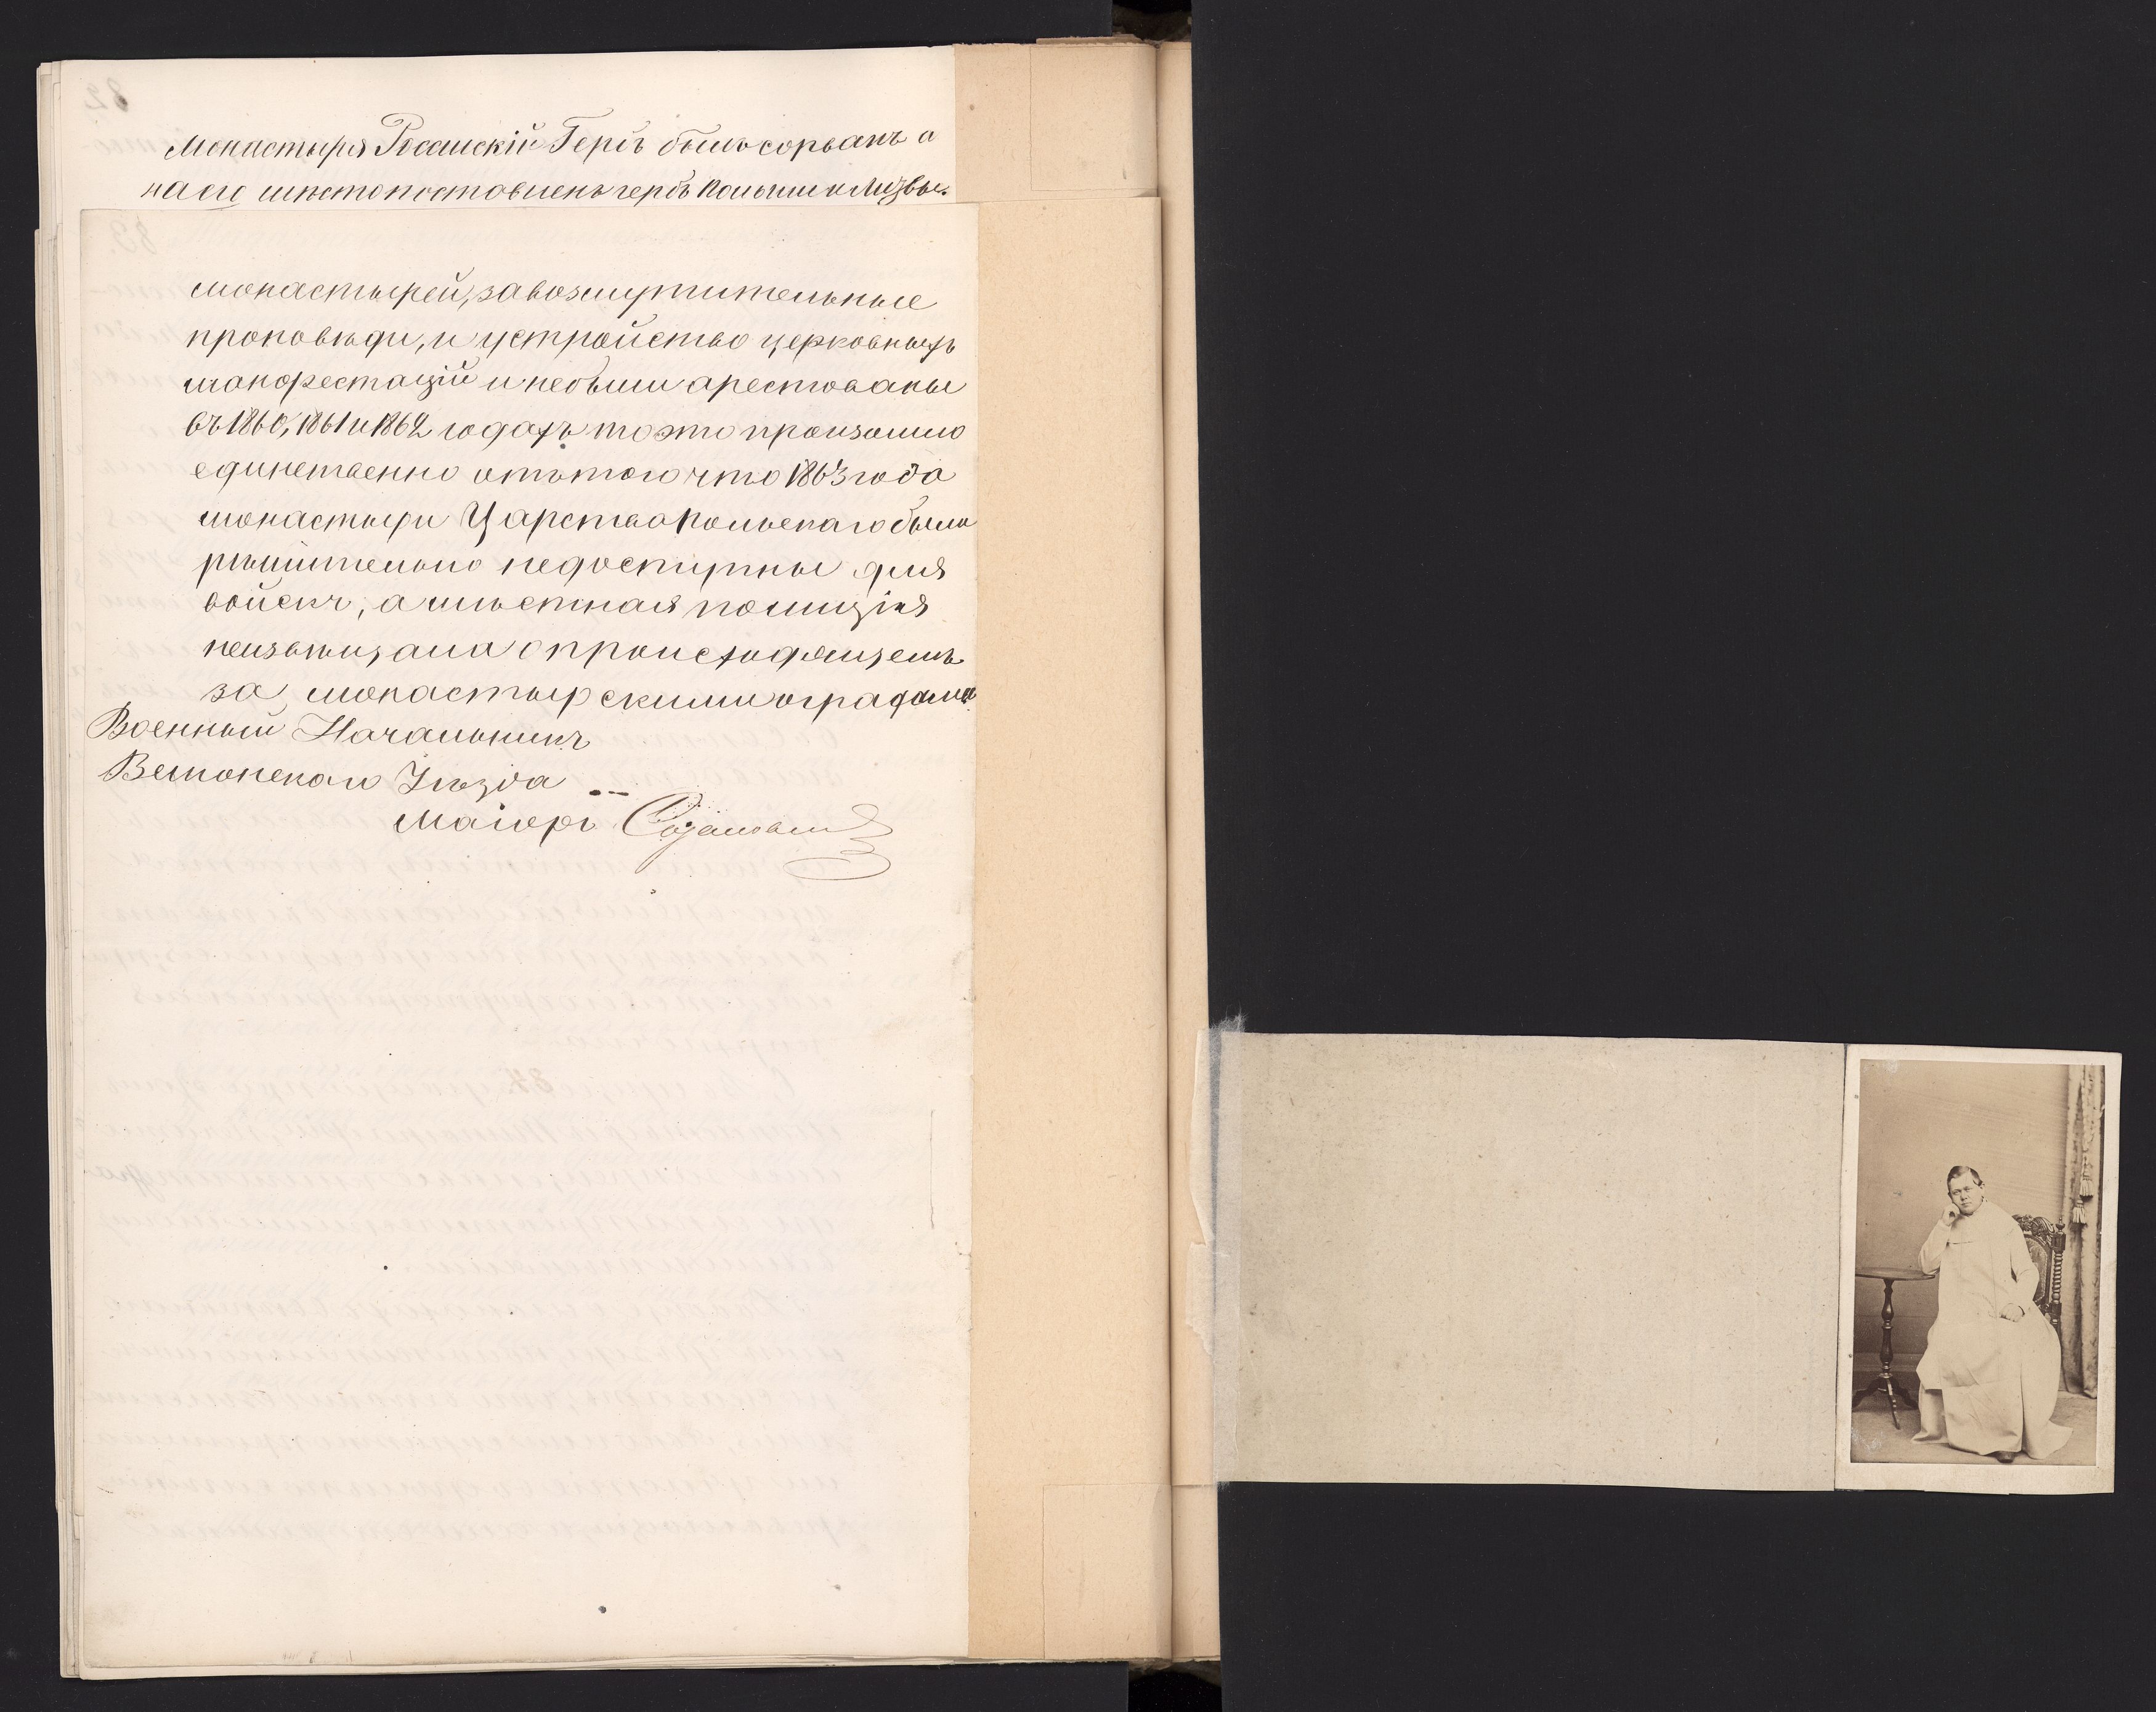 монастыря Россійскій Гербъ былъ сорванъ а
на его мѣсто поставленъ гербъ Польши и Литвы.
монастырей, за возмутительные
проповѣди, и устройство церковныхъ
манифестацій и небыли арестованы
въ 1860, 1861 и 1862 годахъ то это произошло
единственно отъ того что 1863 года
монастыри Царства Польскаго были
рѣшительно недоступны для
войскъ, а мѣстная полиція
неизвѣщала о происходящемъ
за монастырскими оградами.
Военный Начальникъ
Велюнскаго Уѣзда
Маіоръ